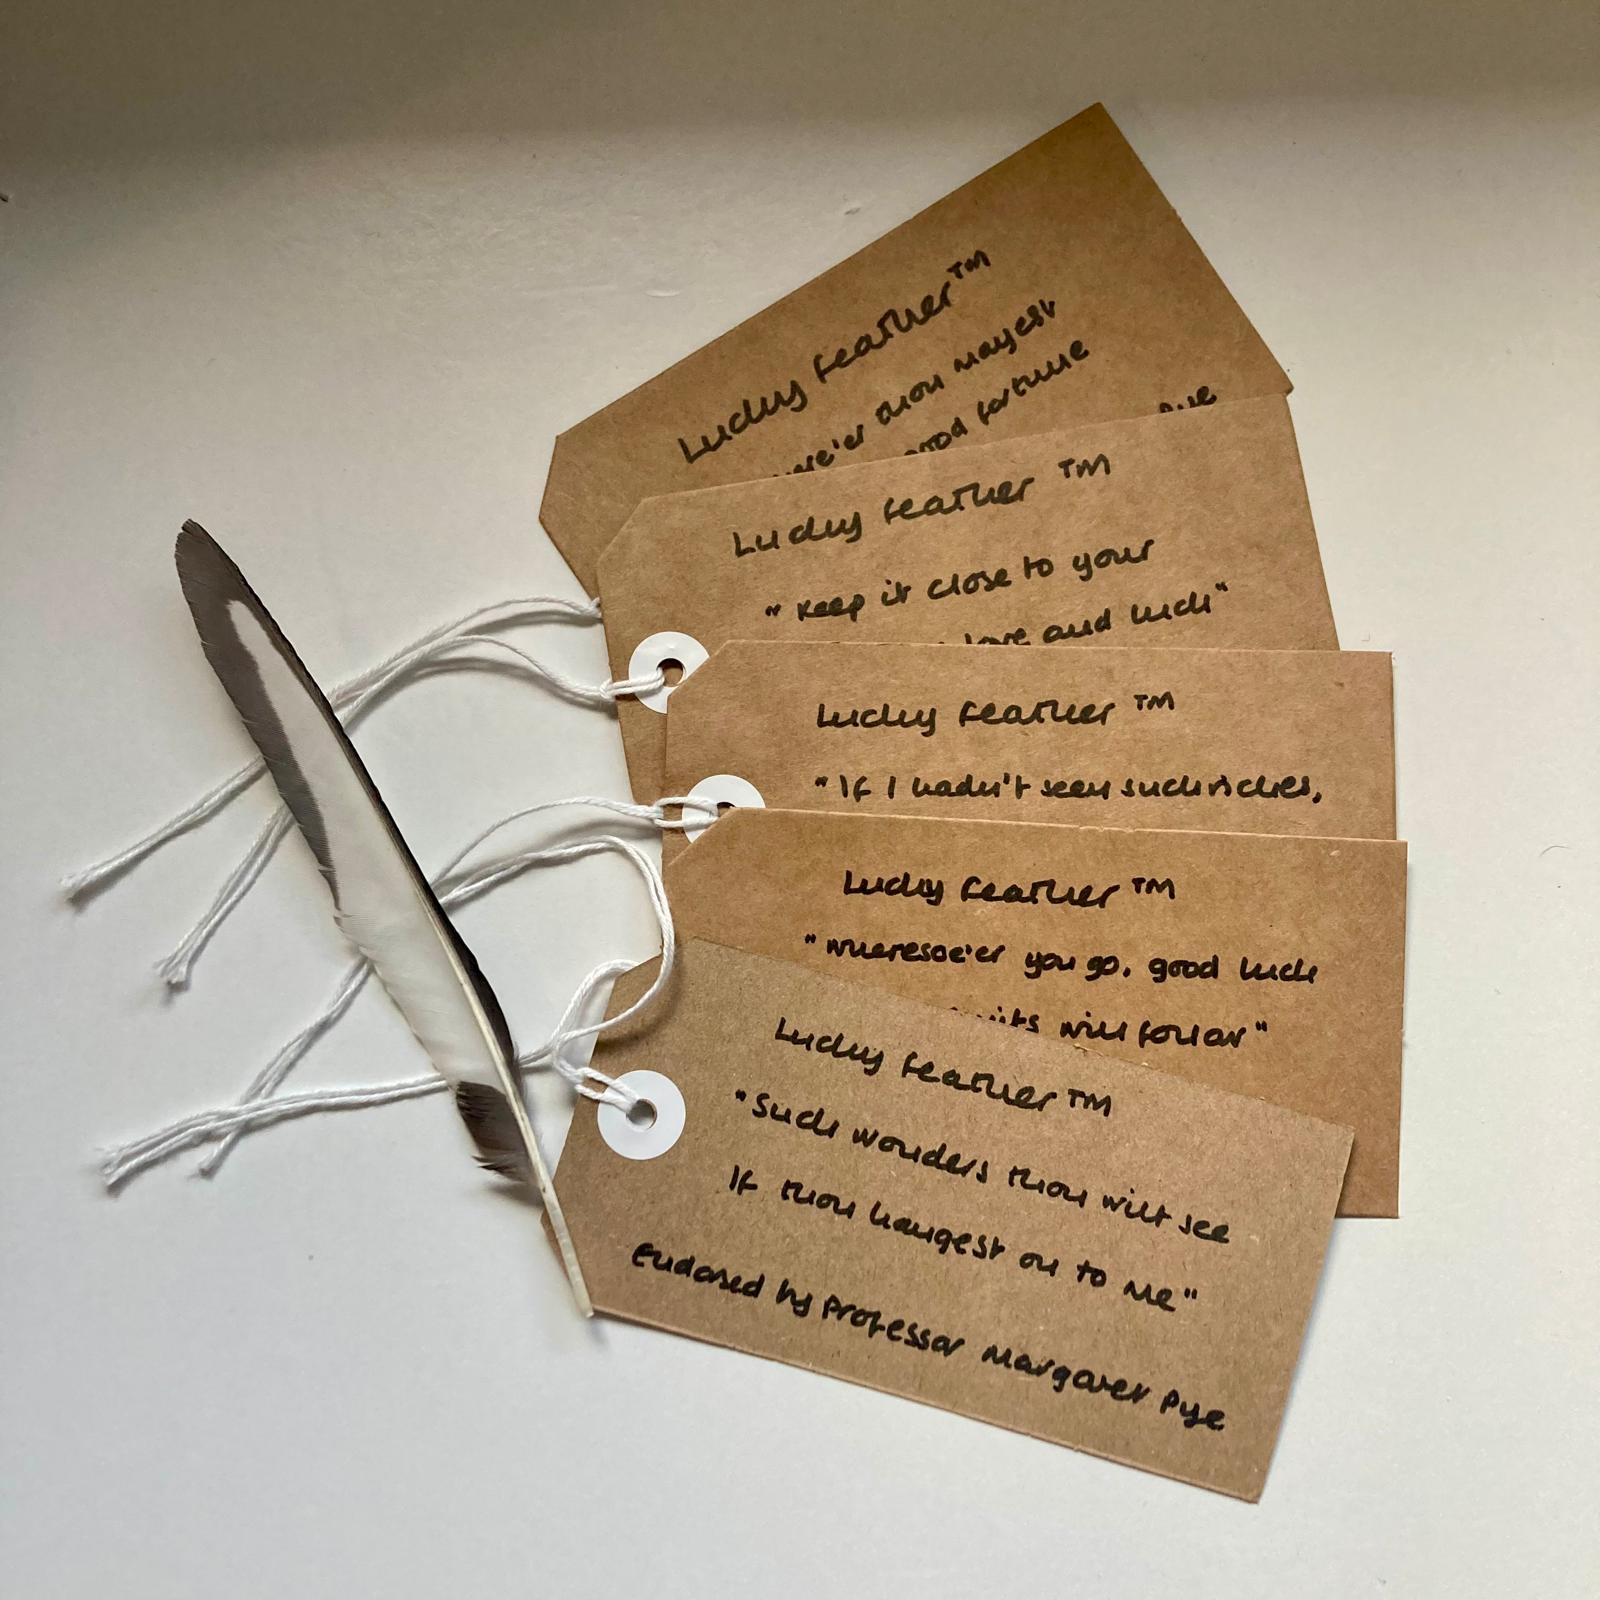 Lucky Feather™
thou mayest
good fortune
Pye
Lucky Feather ™
"Keep it close to your
love and luck"
Lucky Feather ™
"If I hadn't seen such riches,
Lucky Feather ™
"Wheresoe'er you go, good luck
will follow"
Lucky Feather ™
"Such wonders thou wilt see
If thou hangest on to me"
Endorsed by Professor Margaret Pye